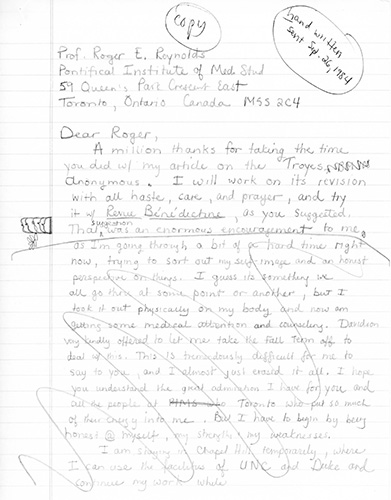 copy
hand written
sent Sep. 26, 1984
Prof. Roger E. Reynolds
Pontifical Institute of Med. Stud
59 Queen's Park Crescent East
Toronto, Ontario Canada M5S 2C4
Dear Roger,
A million thanks for taking the time
you did w/ my article on the Troyes
Anonymous. I will work on its revision
with all haste, care, and prayer, and try
it w/ Revue Bénédictine, as you suggested.
suggestion
That was an enormous encouragement to me,
as I'm going through a bit of a hard time right
now, trying to sort out my self-image and an honest
perspective on things. I guess its something we
all go thru at some point or another, but I
took it out physically on my body and now am
getting some medical attention and counseling. Davidson
very kindly offered to let me take the Fall Term off to
deal w/ this. This is tremendously difficult for me to
say to you, and I almost just erased it all. I hope
you understand the great admiration I have for you and
all the people at PIMS Toronto who put so much
of their energy into me. But I have to begin by being
honest myself, my strengths, my weaknesses.
I am staying in Chapel Hill temporarily, where
I can use the facilities of UNC and Duke and
continue my work while